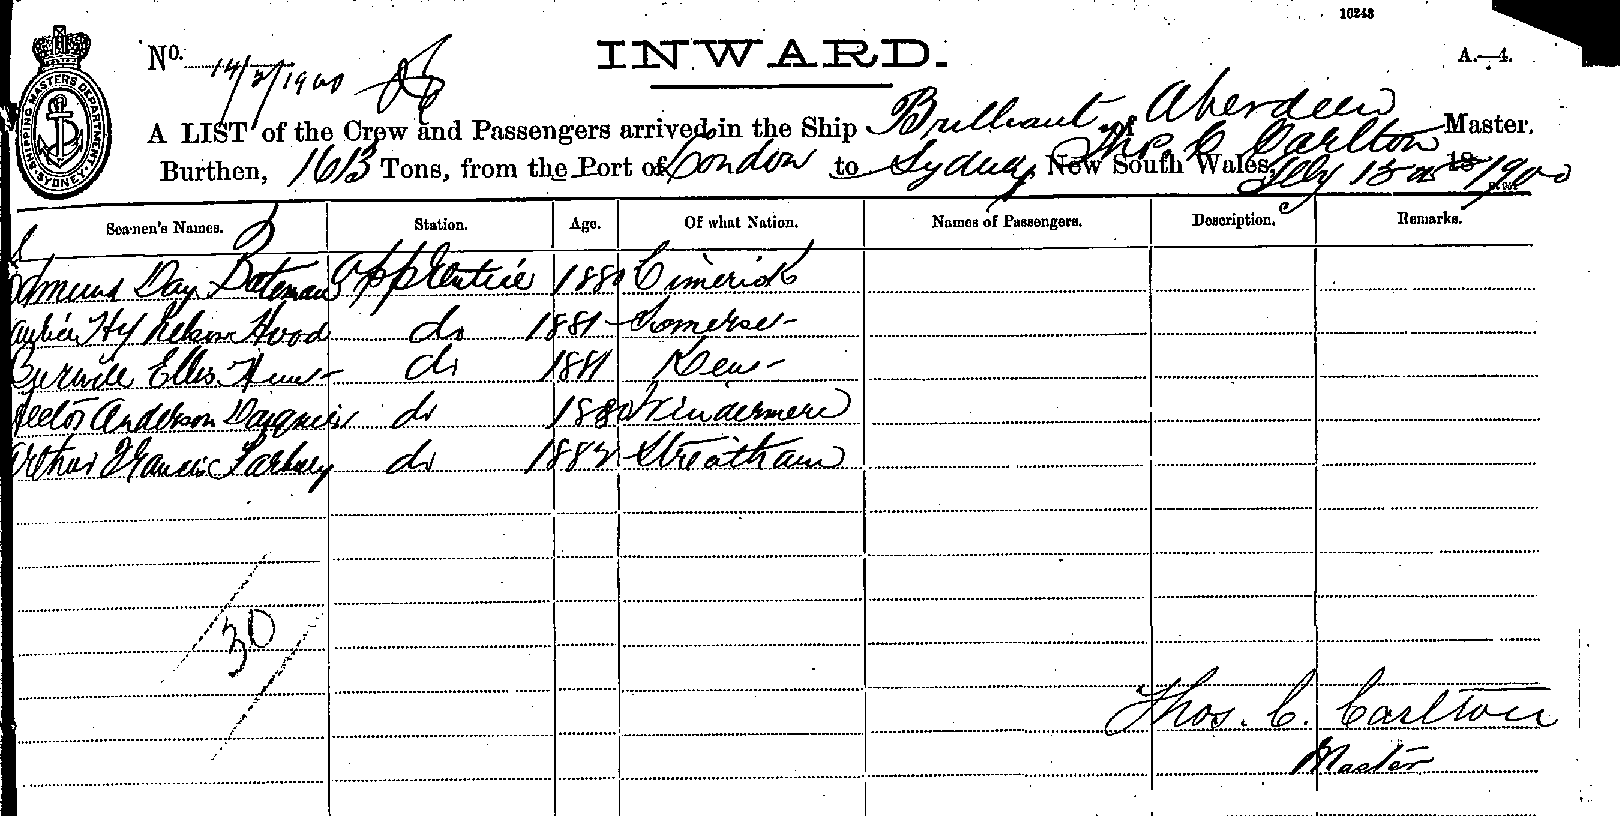 10243
No. 14/2/1900
INWARD.
A.—4.
SHIPPING MASTERS DEPARTMENT SYDNEY.
A LIST of the Crew and Passengers arrived in the Ship Brilliant of Aberdeen Thos. C. Carlton Master,
Burthen, 1613 Tons, from the Port of London to Sydney New South Wales, Feby 13 18 1900
Seamen's Names. Station. Age. Of what Nation. Names of Passengers. Description. Remarks.
Edmund Day Bateman Apprentice 1880 Limerick
Hy Nelson Hood do 1881 Somerset
Ellis Hunt do 1881 Kent
Hector Anderson do 1880 Windermere
Arthur Francis do 1882 Streatham
30
Thos. C. Carlton
Master